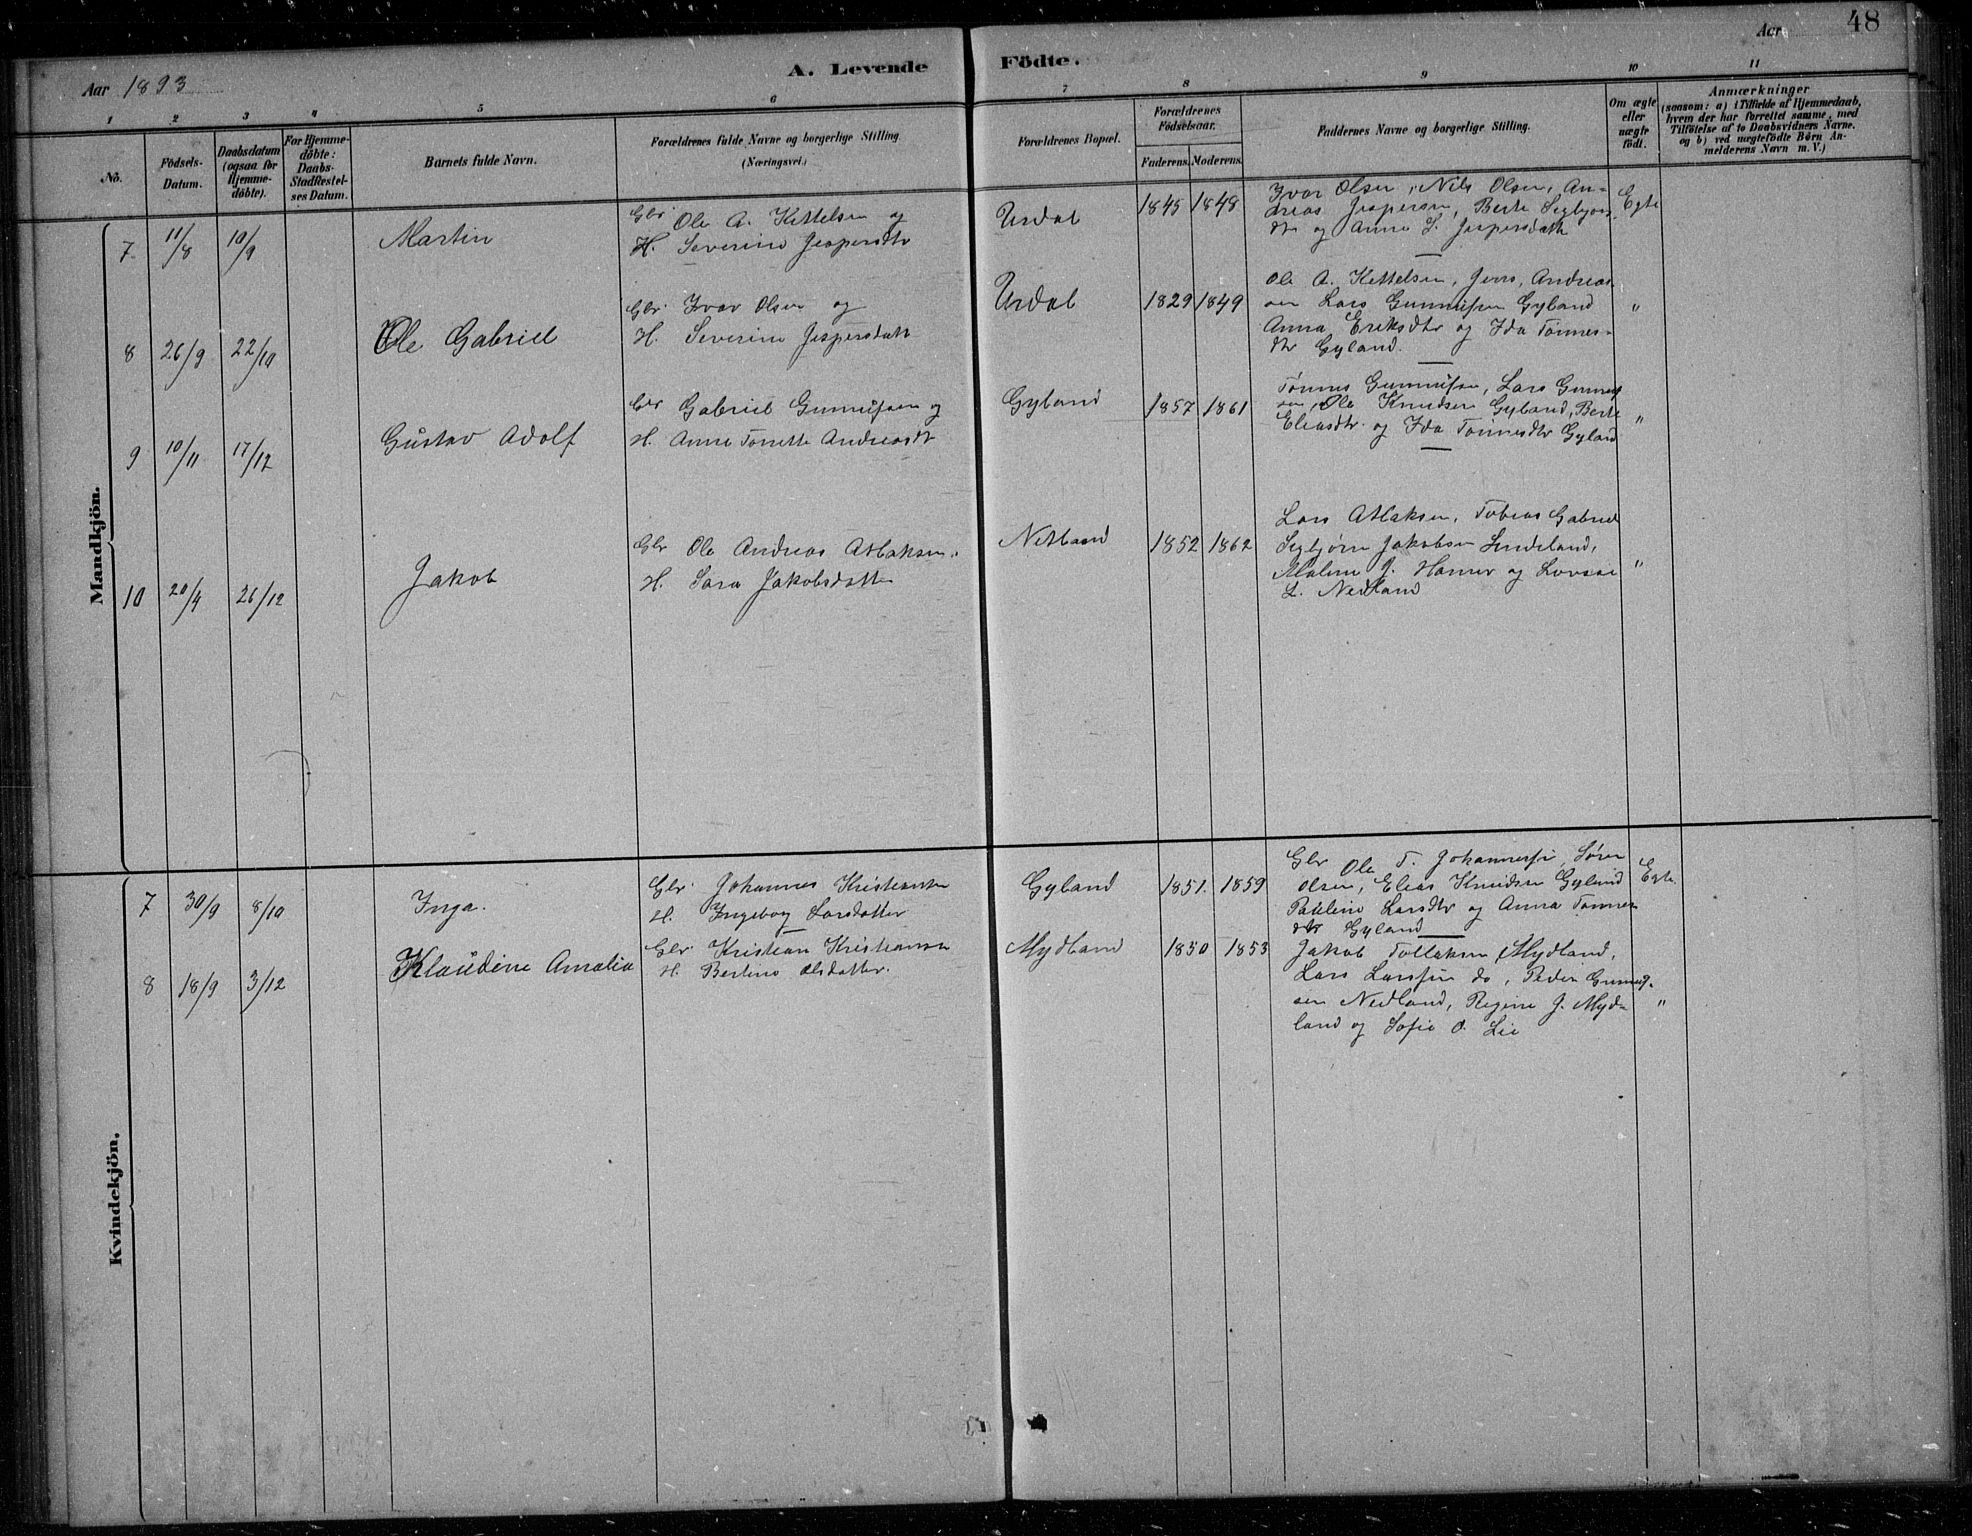 48
Aar 1893
A. Levende
Födte.
Aar
1 2 3 4 5 6 7 8 9 10 11
No.
Födsels-
Datum.
Daabsdatum
(ogsaa for
Hjemme-
döbte).
For Hjemme-
döbte:
Daabs-
Stadfestel-
ses Datum.
Barnets fulde Navn.
Forældrenes fulde Navne og borgerlige Stilling.
(Næringsvei.)
Forældrenes Bopæl.
Forældrenes
Födselsaar.
Faderens. Moderens.
Faddernes Navne og borgerlige Stilling.
Om ægte
eller
uægte
födt.
Anmærkninger
(saasom: a) i Tilfælde af Hjemmedaab,
hvem der har forrettet samme, med
Tilföielse af to Daabsvidners Navne.
og b) ved uægtefödte Börn An-
melderens Navn m. V.)
Mandkjön.
7 11/8 10/9 Martin
Gbr Ole A. Kettelsen og
H. Severine Jespersdtr
Urdal 1845 1848
Ivar Olsen, Nils Olsen, An-
dreas Jespersen, Berte Sigbjørns
dtr og Anne S. Jespersdatt
Egte
8 26/9 22/10 Ole Gabriel
Gbr Ivar Olsen og
H. Severine Jespersdatt
Urdal 1829 1849
Ole A. Kettelsen, Jens, Andreas
sen Lars Gunnufsen Gyland
Anna Eriksdtr og Ida Tønnes-
dtr Gyland.
"
9 10/11 17/12 Gustav Adolf
Gbr Gabriel Gunnufsen og
H. Anne Tonette Andreasdtr
Gyland 1857 1861
Tønnes Gunnufsen, Lars Gunnuf
sen, Ole Knudsen Gyland, Berte
Eliasdtr og Ida Tønnesdtr Gyland
"
10 20/4 26/12 Jakob
Gbr Ole Andreas Atlaksen.
H. Sara Jakobsdatter
Netland 1852 1862
Lars Atlaksen, Tobias Gabriel
Sigbjørn Jakobsen Lindeland,
Malene J. Hamer og Lovise
L. Nedland
"
Kvindekjön.
7 30/9 8/10 Inga.
Gbr Johannes Kristiansen
H. Ingebog Larsdatter
Gyland 1851. 1859
Gbr Ole T. Johannessen, Søren
Olsen, Elias Knudsen Gyland
Pauline Larsdtr og Anna Tønnes
dtr Gyland
Egte.
8 18/9 3/12 Klaudine Amalia
Gbr Kristian Kristiansen
H. Bertine Olsdatter.
Mydland 1850 1853
Jakob Tollaksen Mydland,
Lars Larssen do, Peder Gunnuf-
sen Nedland, Regine J. Myd-
land og Sofie O. Lie
"